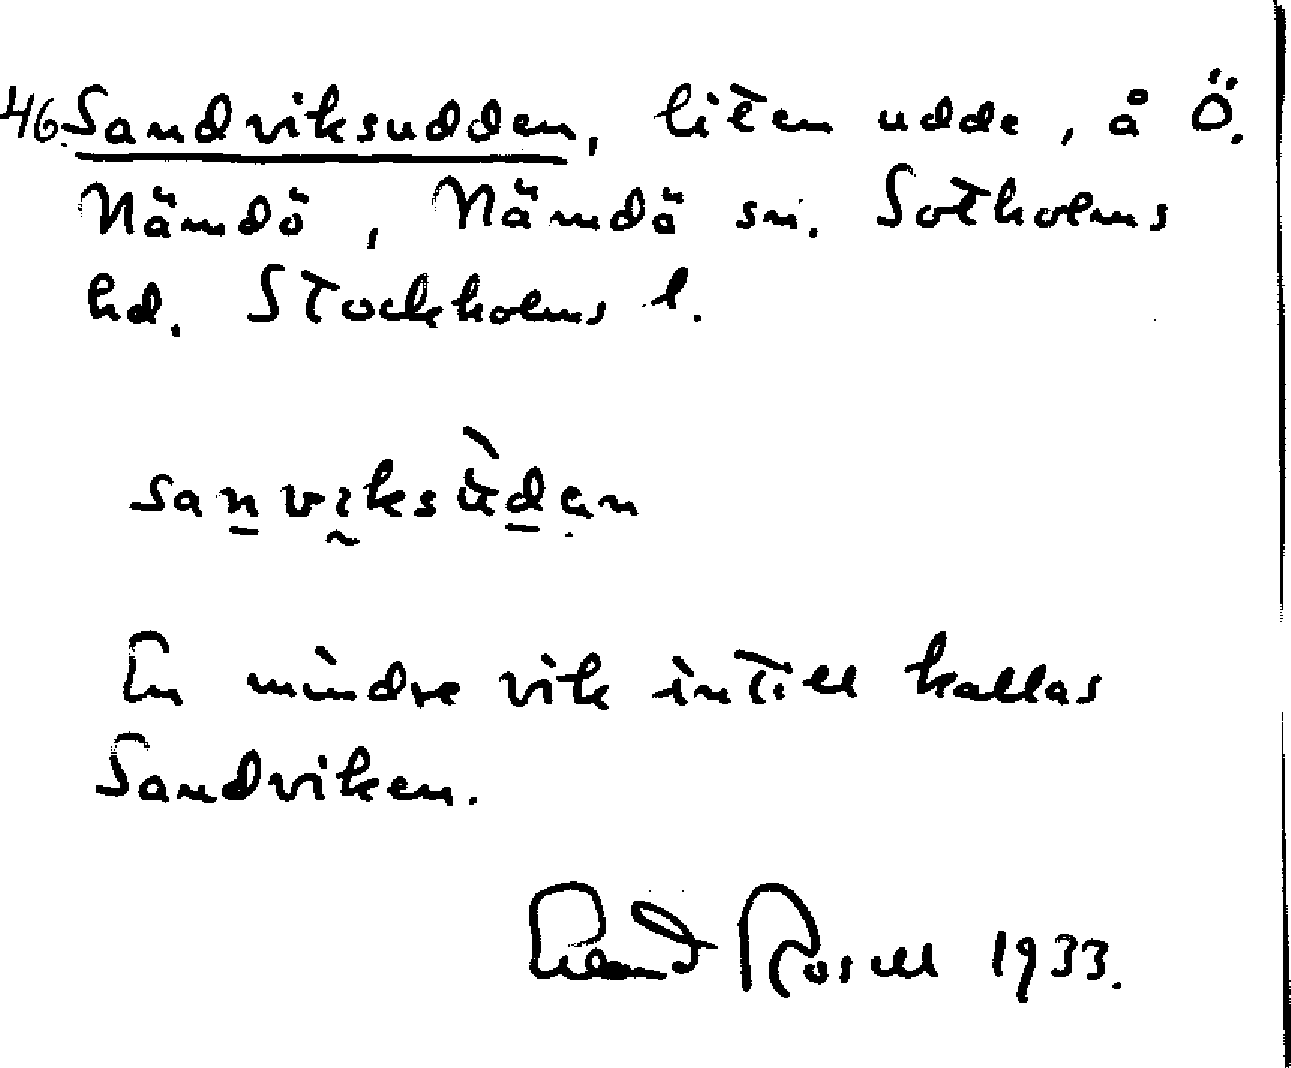 46. Sandviksudden, liten udde, å Ö.
Nämdö, Nämdö sn. Sotholms
hd. Stockholms l.
sanviksùden
En mindre vik intill kallas
Sandviken.
Rosell 1933.